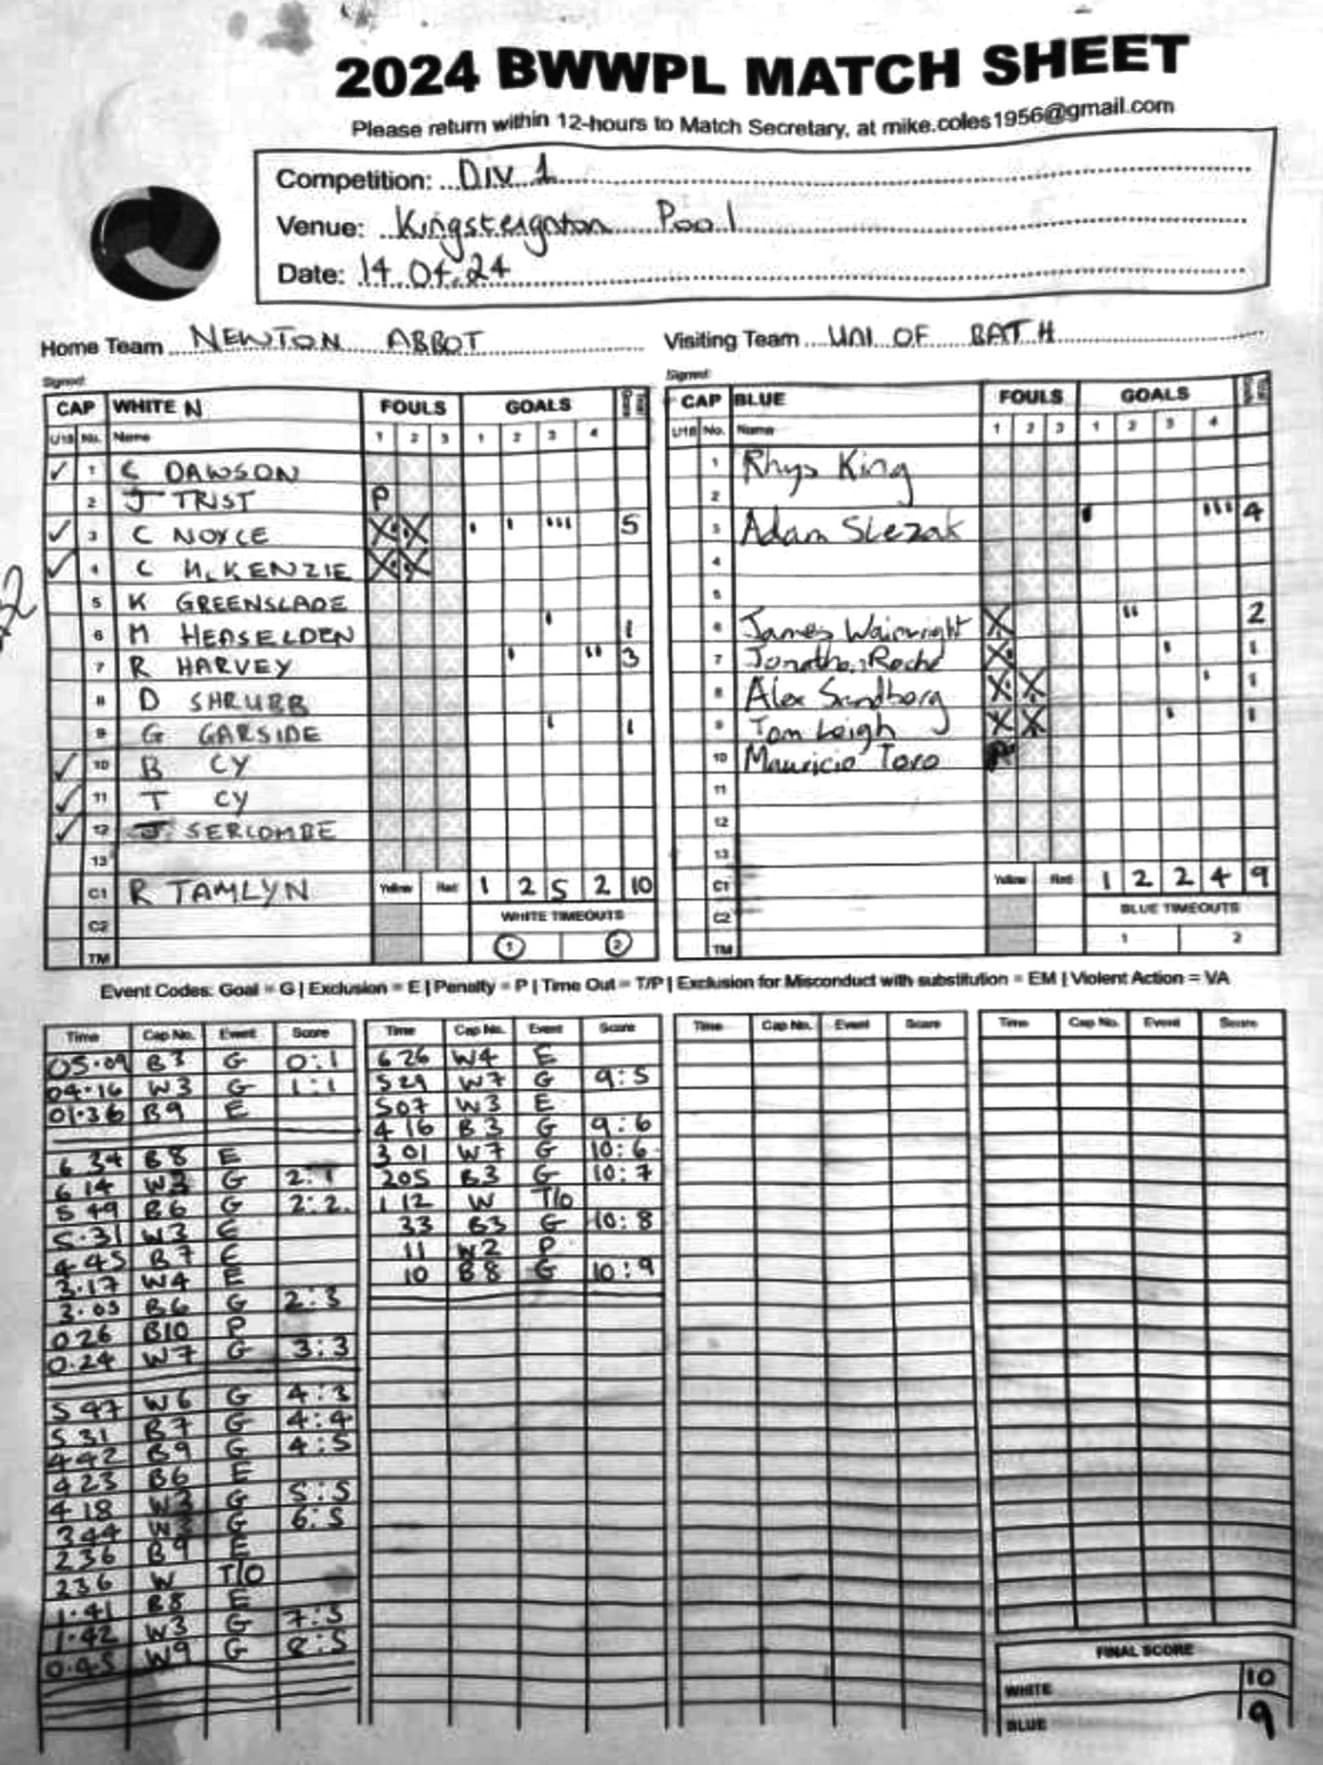 2024 BWWPL MATCH SHEET
Please return within 12-hours to Match Secretary, at mike.coles1956@gmail.com
Competition: Div 1
Venue: Kingsteignton Pool
Date: 14.04.24
Home Team NEWTON ABBOT Visiting Team UNI OF BATH
Signed: Signed:
CAP WHITE N FOULS GOALS
U18 No. Name 1 2 3 1 2 3 4
✓ 1 C DAWSON
2 J TRIST P
✓ 3 C NOYCE X X ı ı ııı 5
✓ 4 C McKENZIE X X
5 K GREENSLADE
6 M HEASELDEN ı 1
7 R HARVEY ı ıı 3
8 D SHRUBB
9 G GARSIDE ı 1
✓ 10 B CY
✓ 11 T CY
✓ 12 J SERCOMBE
13
C1 R TAMLYN Yellow Red 1 2 5 2 10
C2 WHITE TIMEOUTS
TM 1 2
CAP BLUE FOULS GOALS
U18 No. Name 1 2 3 1 2 3 4
1 Rhys King
2
3 Adam Slezak ı ııı 4
4
5
6 James Wainwright X ıı 2
7 Jonathan Roche X ı 1
8 Alex Sandberg X X ı 1
9 Tom Leigh X X ı 1
10 Mauricio Toro P
11
12
13
C1 Yellow Red 1 2 2 4 9
C2 BLUE TIMEOUTS
TM 1 2
Event Codes: Goal = G | Exclusion = E | Penalty = P | Time Out = T/P | Exclusion for Misconduct with substitution = EM | Violent Action = VA
Time Cap No. Event Score
05.09 B3 G 0:1
04.16 W3 G 1:1
01.36 B9 E
6 34 B8 E
6 14 W3 G 2:1
5 49 B6 G 2:2
5.31 W3 E
4 45 B7 E
3.17 W4 E
3.05 B6 G 2:3
0 26 B10 P
0.24 W7 G 3:3
5 47 W6 G 4:3
5 31 B7 G 4:4
442 B9 G 4:5
423 B6 E
4 18 W3 G 5:5
344 W3 G 6:5
236 B9 E
236 W T/O
1.41 B8 E
1.42 W3 G 7:5
0.45 W9 G 8:5
Time Cap No. Event Score
6 26 W4 E
5 29 W7 G 9:5
507 W3 E
4 16 B3 G 9:6
3 01 W7 G 10:6
205 B3 G 10:7
1 12 W T/O
33 B3 G 10:8
11 W2 P
10 B8 G 10:9
Time Cap No. Event Score
Time Cap No. Event Score
FINAL SCORE
WHITE 10
BLUE 9